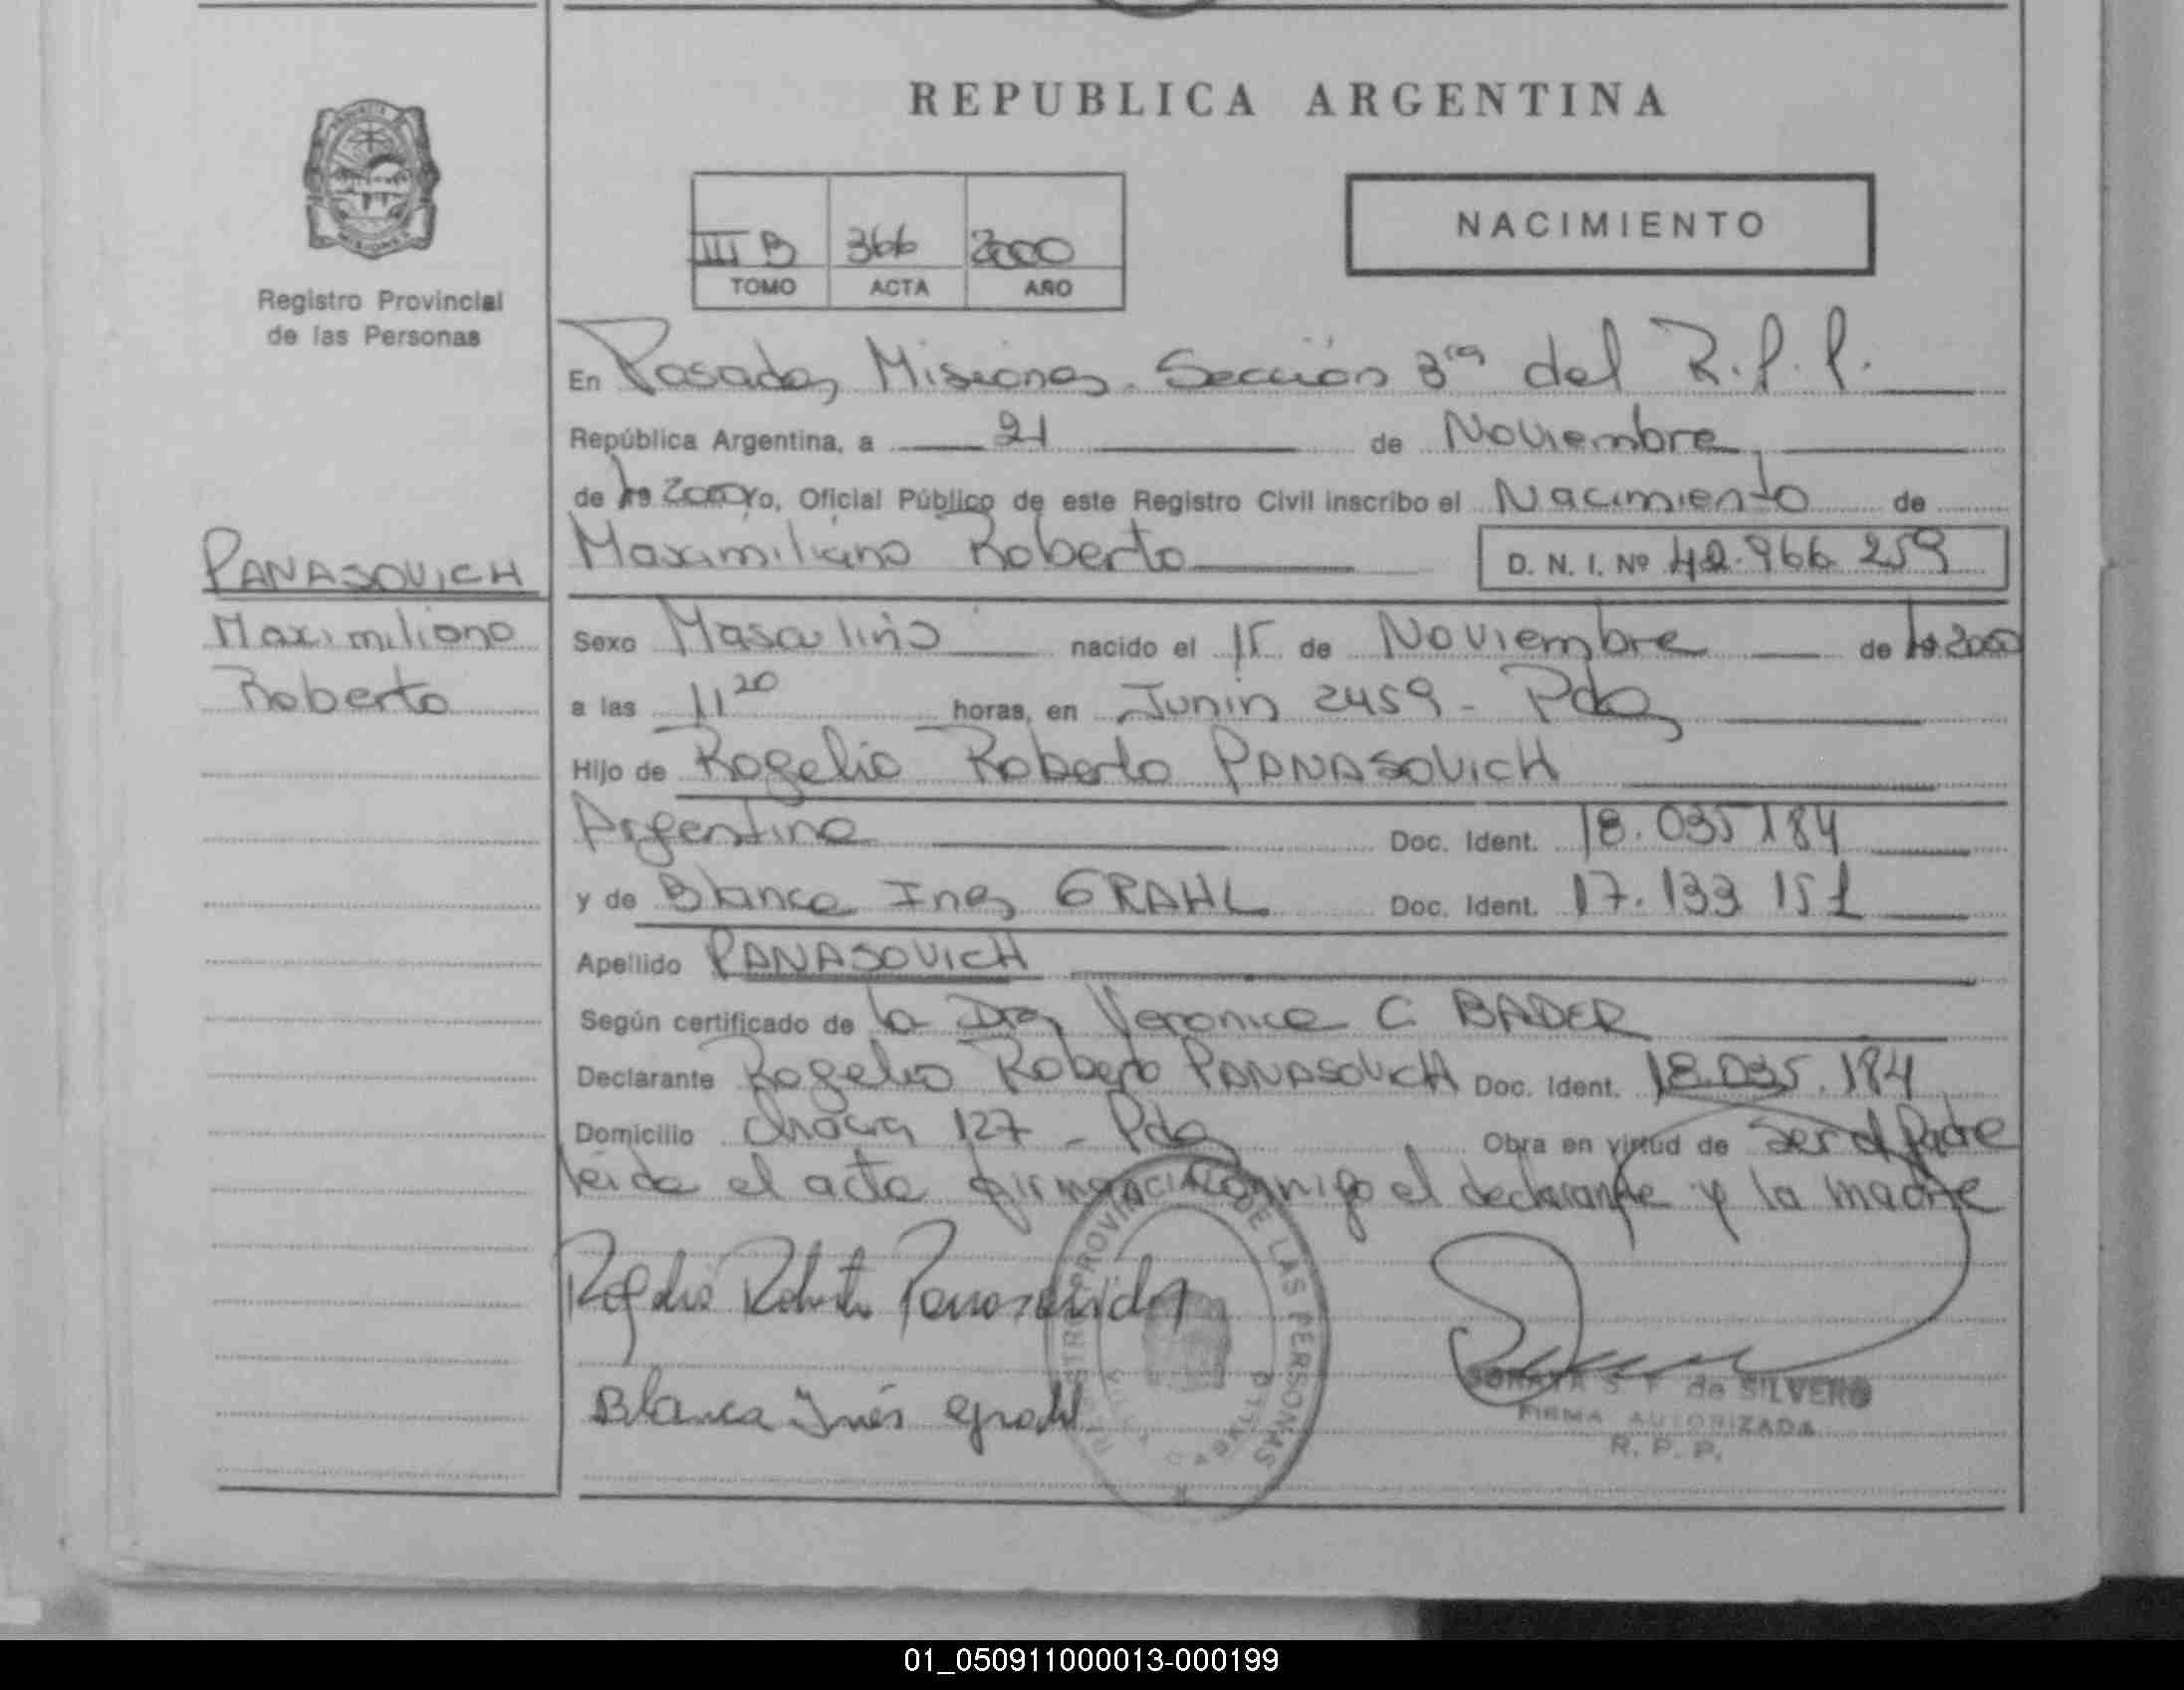 REPUBLICA ARGENTINA
NACIMIENTO
III B 366 2000
TOMO ACTA AÑO
Registro Provincial
de las Personas
En Posadas, Misiones. Sección 3ra del R.P.P.
República Argentina, a 21 de Noviembre
de 19 2000 Yo, Oficial Público de este Registro Civil inscribo el Nacimiento de
Maximiliano Roberto D. N. I. Nº 42.966 259
PANASOVICH
Maximiliano
Roberto
Sexo Masculino nacido el 15 de Noviembre de 19 2000
a las 11 20 horas, en Junin 2459 - Pdas
Hijo de Rogelio Roberto PANASOVICH
Argentina Doc. Ident. 18.035 184
y de Blanca Ines GRAHL Doc. Ident. 17.133 151
Apellido PANASOVICH
Según certificado de la Dra Veronica C. BADER
Declarante Rogelio Roberto PANASOVICH Doc. Ident. 18.035.184
Domicilio chacra 127 - Pdas Obra en virtud de ser el Padre
leida el acta firman conmigo el declarante y la madre
Rogelio Roberto Panasovich
Blanca Inés Grahl
REGISTRO PROVINCIAL DE LAS PERSONAS
S. F. de SILVERO
FIRMA AUTORIZADA
R. P. P.
01_050911000013-000199